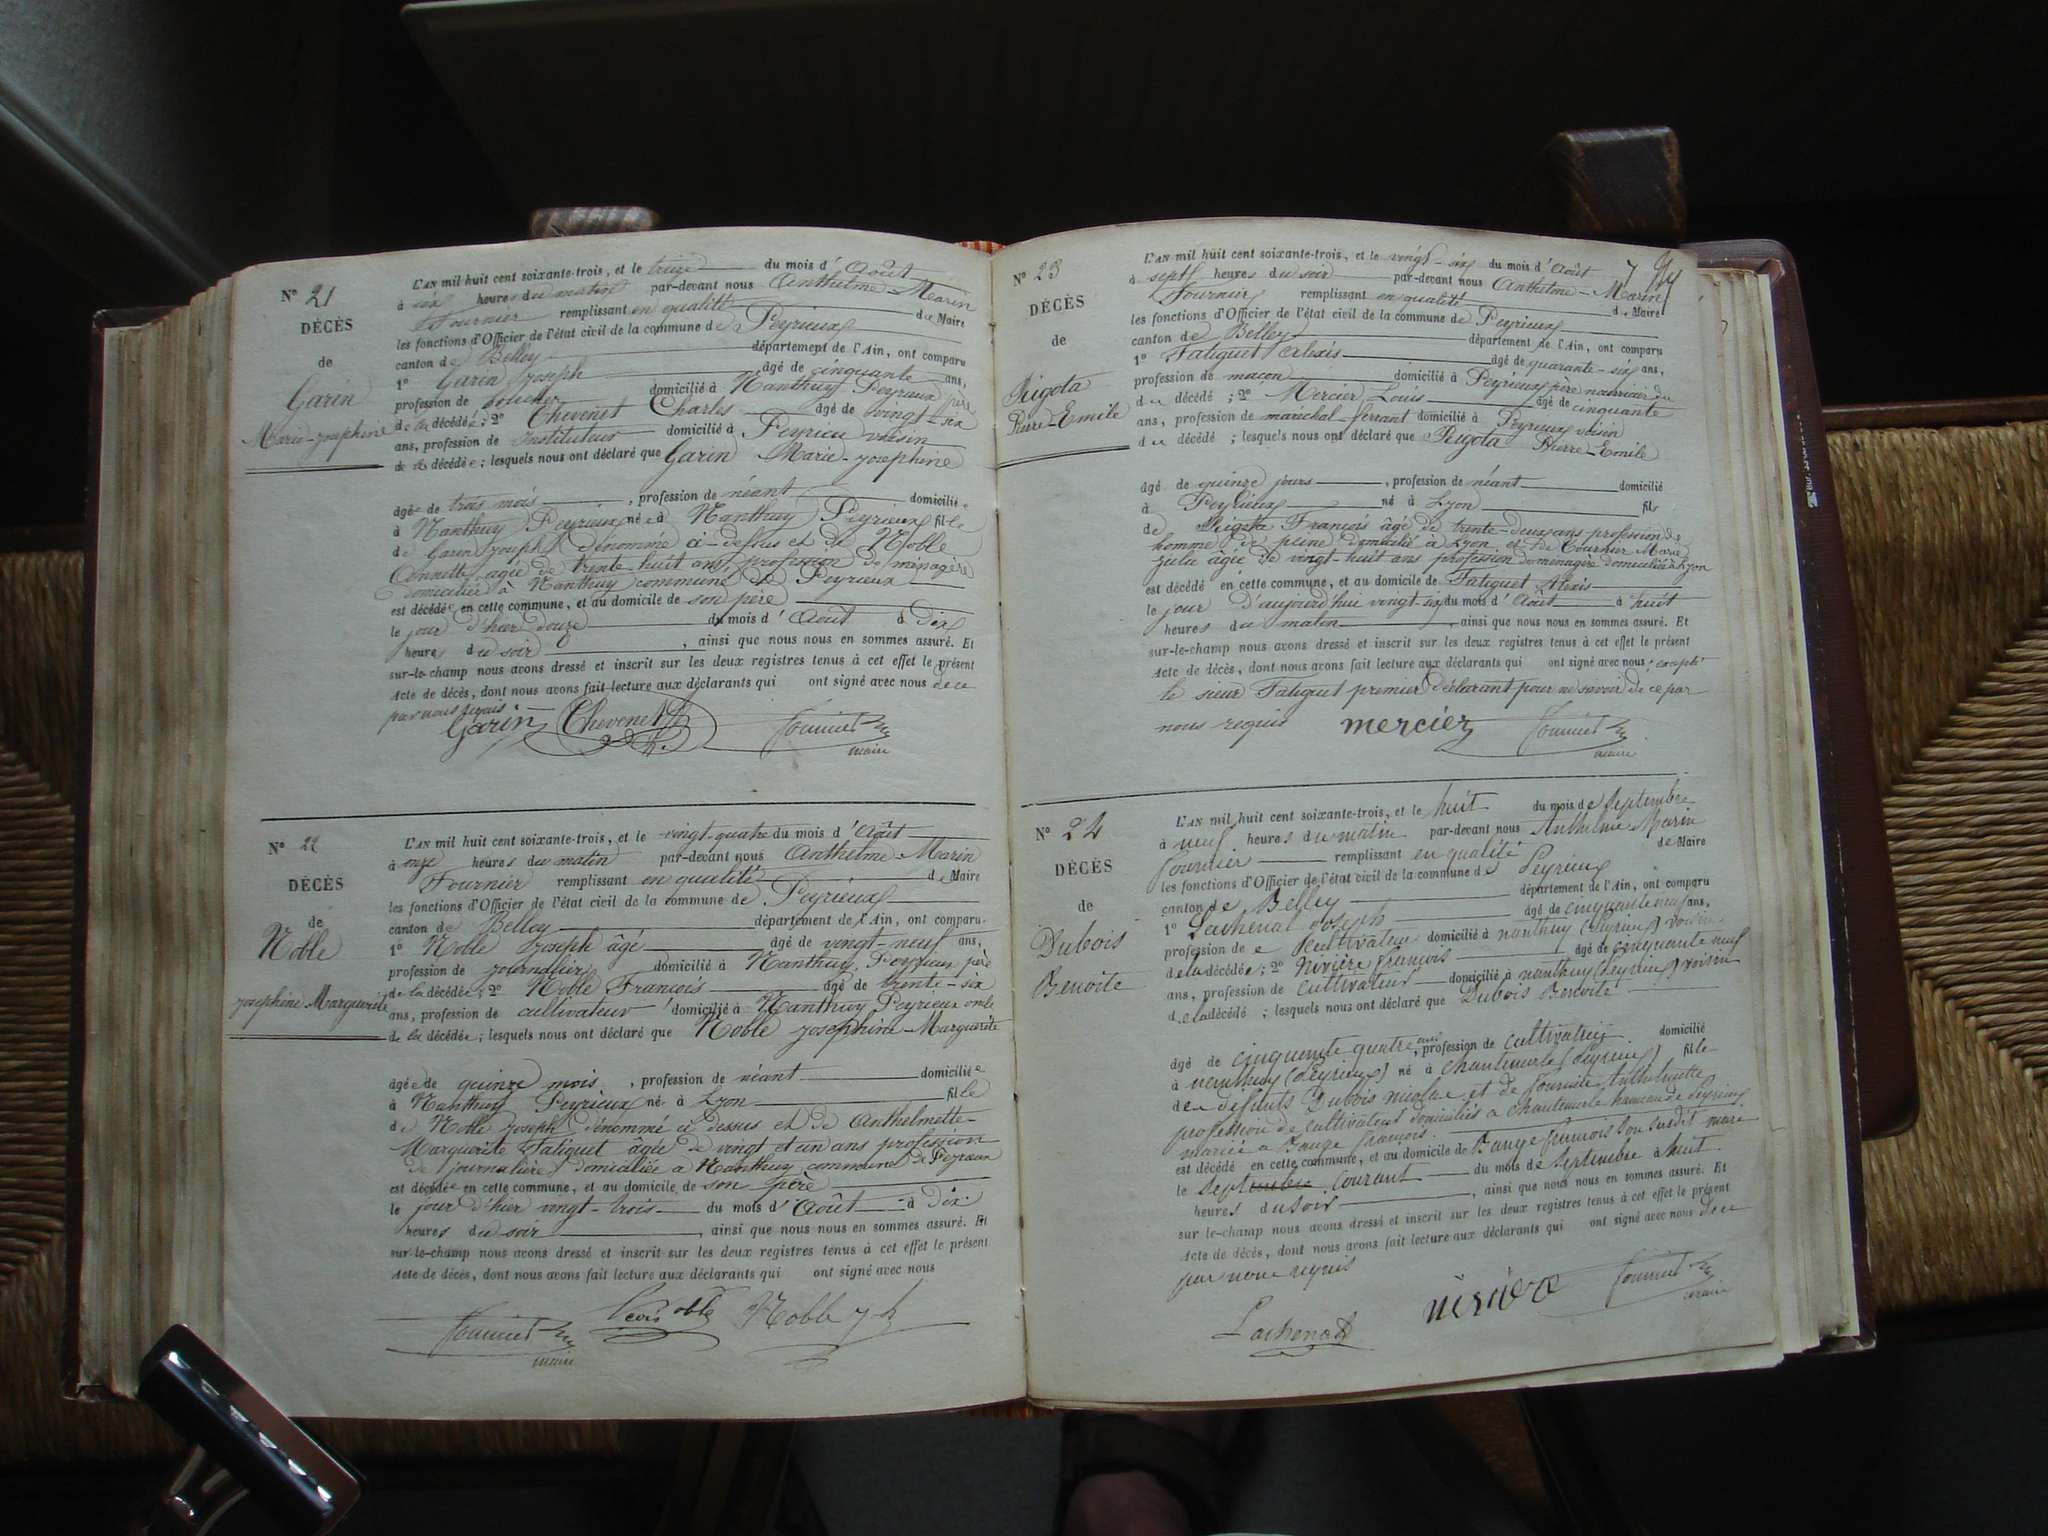 N° 21
DÉCÈS
de
Garin
Marie-Josephine
L'AN mil huit cent soixante-trois, et le treize du mois d'Août
à six heures du matin par-devant nous Anthelme-Marin
Fournier remplissant en qualité de Maire
les fonctions d'Officier de l'état civil de la commune de Peyrieux
canton de Belley département de l'Ain, ont comparu
1° Garin Joseph âgé de cinquante ans,
profession de domicilié à Nanthuy Peyrieux père
de la décédée; 2° Chevenet Charles âgé de vingt-six
ans, profession de Instituteur domicilié à Peyrieu voisin
de la décédée; lesquels nous ont déclaré que Garin Marie-Josephine
âgée de trois mois, profession de néant domiciliée
à Nanthuy Peyrieux née à Nanthuy Peyrieux fille
de Garin Joseph dénommé ci-dessus et de Noble
Annette agée de trente huit ans, profession de ménagère
domiciliée à Nanthuy commune de Peyrieux
est décédée en cette commune, et au domicile de son père
le jour d'hier douze du mois d'Août à Dix
heures du soir, ainsi que nous nous en sommes assuré. Et
sur-le-champ nous avons dressé et inscrit sur les deux registres tenus à cet effet le présent
Acte de décès, dont nous avons fait lecture aux déclarants qui ont signé avec nous de ce
par nous requis
Garin Chevenet Fournier
maire
N° 22
DÉCÈS
de
Noble
Josephine Marguerite
L'AN mil huit cent soixante-trois, et le vingt-quatre du mois d'Août
à onze heures du matin par-devant nous Anthelme-Marin
Fournier remplissant en qualité de Maire
les fonctions d'Officier de l'état civil de la commune de Peyrieux
canton de Belley département de l'Ain, ont comparu
1° Noble Joseph âgé âgé de vingt-neuf ans,
profession de journalier domicilié à Nanthuy, Peyrieux père
de la décédée; 2° Noble François âgé de trente-six
ans, profession de cultivateur domicilié à Nanthuy Peyrieux oncle
de la décédée; lesquels nous ont déclaré que Noble Josephine-Marguerite
âgée de quinze mois, profession de néant domiciliée
à Nanthuy Peyrieux née à Lyon fille
de Noble Joseph dénommé ci dessus et de Anthelmette
Marguerite Fatiguet âgée de vingt et un ans profession
de journalière domiciliée à Nanthuy commune de Peyrieux
est décédée en cette commune, et au domicile de son père
le jour d'hier vingt-trois du mois d'Août à Dix
heures du soir, ainsi que nous nous en sommes assuré. Et
sur-le-champ nous avons dressé et inscrit sur les deux registres tenus à cet effet le présent
Acte de décès, dont nous avons fait lecture aux déclarants qui ont signé avec nous
Fournier Noble
maire
N° 23
DÉCÈS
de
Rigota
Pierre-Emile
L'AN mil huit cent soixante-trois, et le vingt-six du mois d'Août
à sept heures du soir par-devant nous Anthelme-Marin
Fournier remplissant en qualité de Maire
les fonctions d'Officier de l'état civil de la commune de Peyrieux
canton de Belley département de l'Ain, ont comparu
1° Fatiguet Alexis âgé de quarante-six ans,
profession de maçon domicilié à Peyrieux père nourricier du
du décédé; 2° Mercier Louis âgé de cinquante
ans, profession de maréchal-ferrant domicilié à Peyrieux voisin
du décédé; lesquels nous ont déclaré que Rigota Pierre-Emile
âgé de quinze jours, profession de néant domicilié
à Peyrieux né à Lyon fils
de Rigota François âgé de trente-deux ans profession de
homme de peine domicilié à Lyon et de Tournier Marie
Julie âgée de vingt-huit ans profession de ménagère domiciliée à Lyon
est décédé en cette commune, et au domicile de Fatiguet Alexis
le jour d'aujourd'hui vingt-six du mois d'Août à huit
heures du matin, ainsi que nous nous en sommes assuré. Et
sur-le-champ nous avons dressé et inscrit sur les deux registres tenus à cet effet le présent
Acte de décès, dont nous avons fait lecture aux déclarants qui ont signé avec nous excepté
le sieur Fatiguet premier déclarant pour ne savoir de ce par
nous requis mercier Fournier
maire
N° 24
DÉCÈS
de
Dubois
Benoite
L'AN mil huit cent soixante-trois, et le huit du mois de septembre
à neuf heures du matin par-devant nous Anthelme Marin
Fournier remplissant en qualité de Maire
les fonctions d'Officier de l'état civil de la commune de Peyrieux
canton de Belley département de l'Ain, ont comparu
1° Lachenal Joseph âgé de cinquante neuf ans,
profession de cultivateur domicilié à nanthuy (Peyrieux) voisin
de la décédée; 2° Nivière françois âgé de cinquante neuf
ans, profession de cultivateur domicilié à nanthuy (Peyrieux) voisin
de la décédé; lesquels nous ont déclaré que Dubois Benoite
âgé de cinquante quatre ans, profession de cultivatrice domicilié
à nanthuy (Peyrieux) né à chantemerle (Peyrieux) fille
de defunts Dubois nicolas et de fournier Anthelmette
profession de cultivateurs domiciliés à chantemerle hameau de Peyrieux
mariée a Bauge françois
est décédé en cette commune, et au domicile de Bauge françois son susdit mari
le sept courant du mois de septembre à huit
heures du soir, ainsi que nous nous en sommes assuré. Et
sur-le-champ nous avons dressé et inscrit sur les deux registres tenus à cet effet le présent
Acte de décès, dont nous avons fait lecture aux déclarants qui ont signé avec nous de ce
par nous requis
Lachenal nivière Fournier
maire